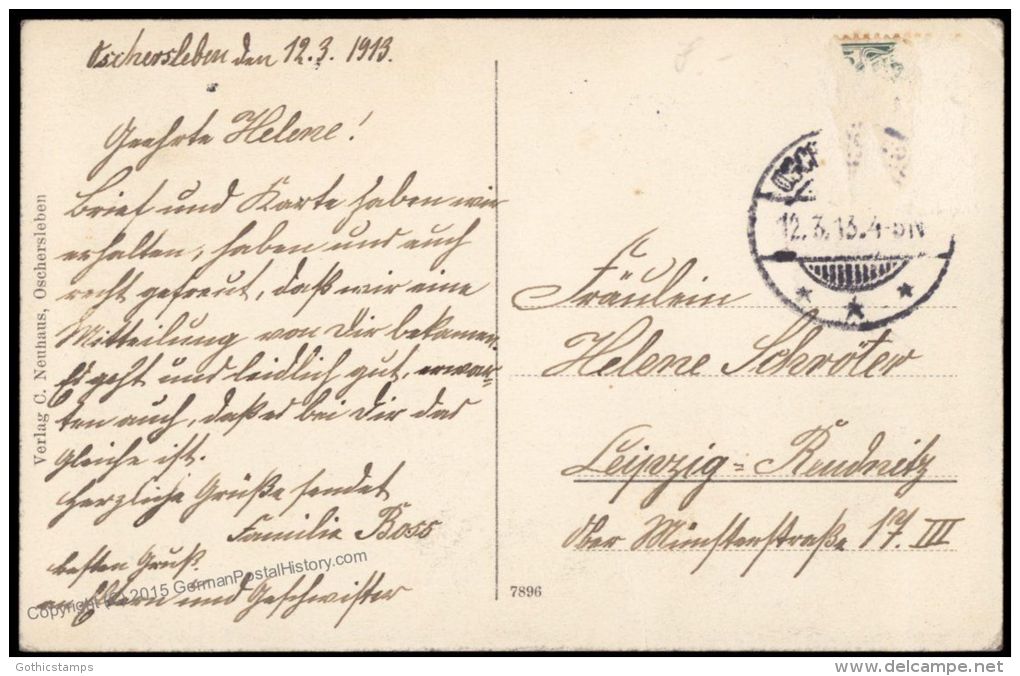 Oschersleben den 12.3. 1913.
Geehrte Helene!
Brief und Karte haben wir
erhalten, haben uns auch
recht gefreut, daß wir eine
Mitteilung von Dir bekamen.
Es geht uns leidlich gut, erwar-
ten auch, daß es bei Dir das
Gleiche ist.
Herzliche Grüße sendet
Familie Boss
besten Gruß.
an Eltern und Geschwister
Verlag C. Neuhaus, Oschersleben
12.3.13.4-5N
Fräulein
Helene Schröter
Leipzig-Reudnitz
Ober Münsterstraße 17. III
7896
Copyright (c) 2015 GermanPostalHistory.com
Gothicstamps
www.delcampe.net